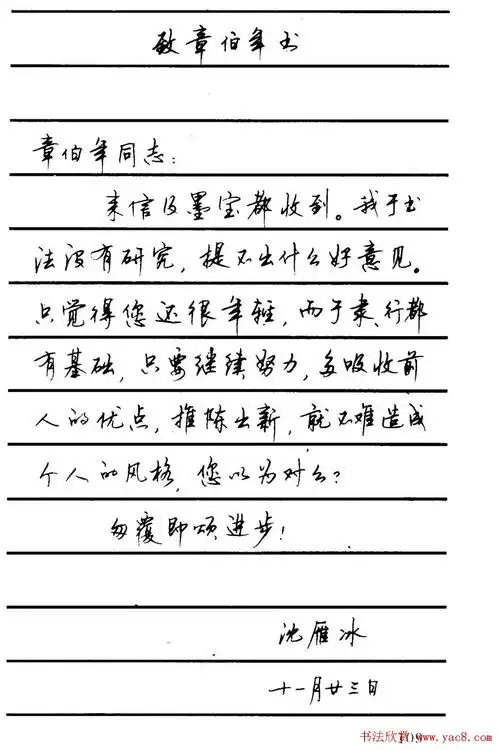 致章伯年书
章伯年同志：
来信及墨宝都收到。我于书
法没有研究，提不出什么好意见。
只觉得您还很年轻，而于隶、行都
有基础，只要继续努力，多吸收前
人的优点，推陈出新，就不难造成
个人的风格，您以为对么？
匆覆即颂进步！
沈雁冰
十一月廿三日
109
书法欣赏 www.yac8.com